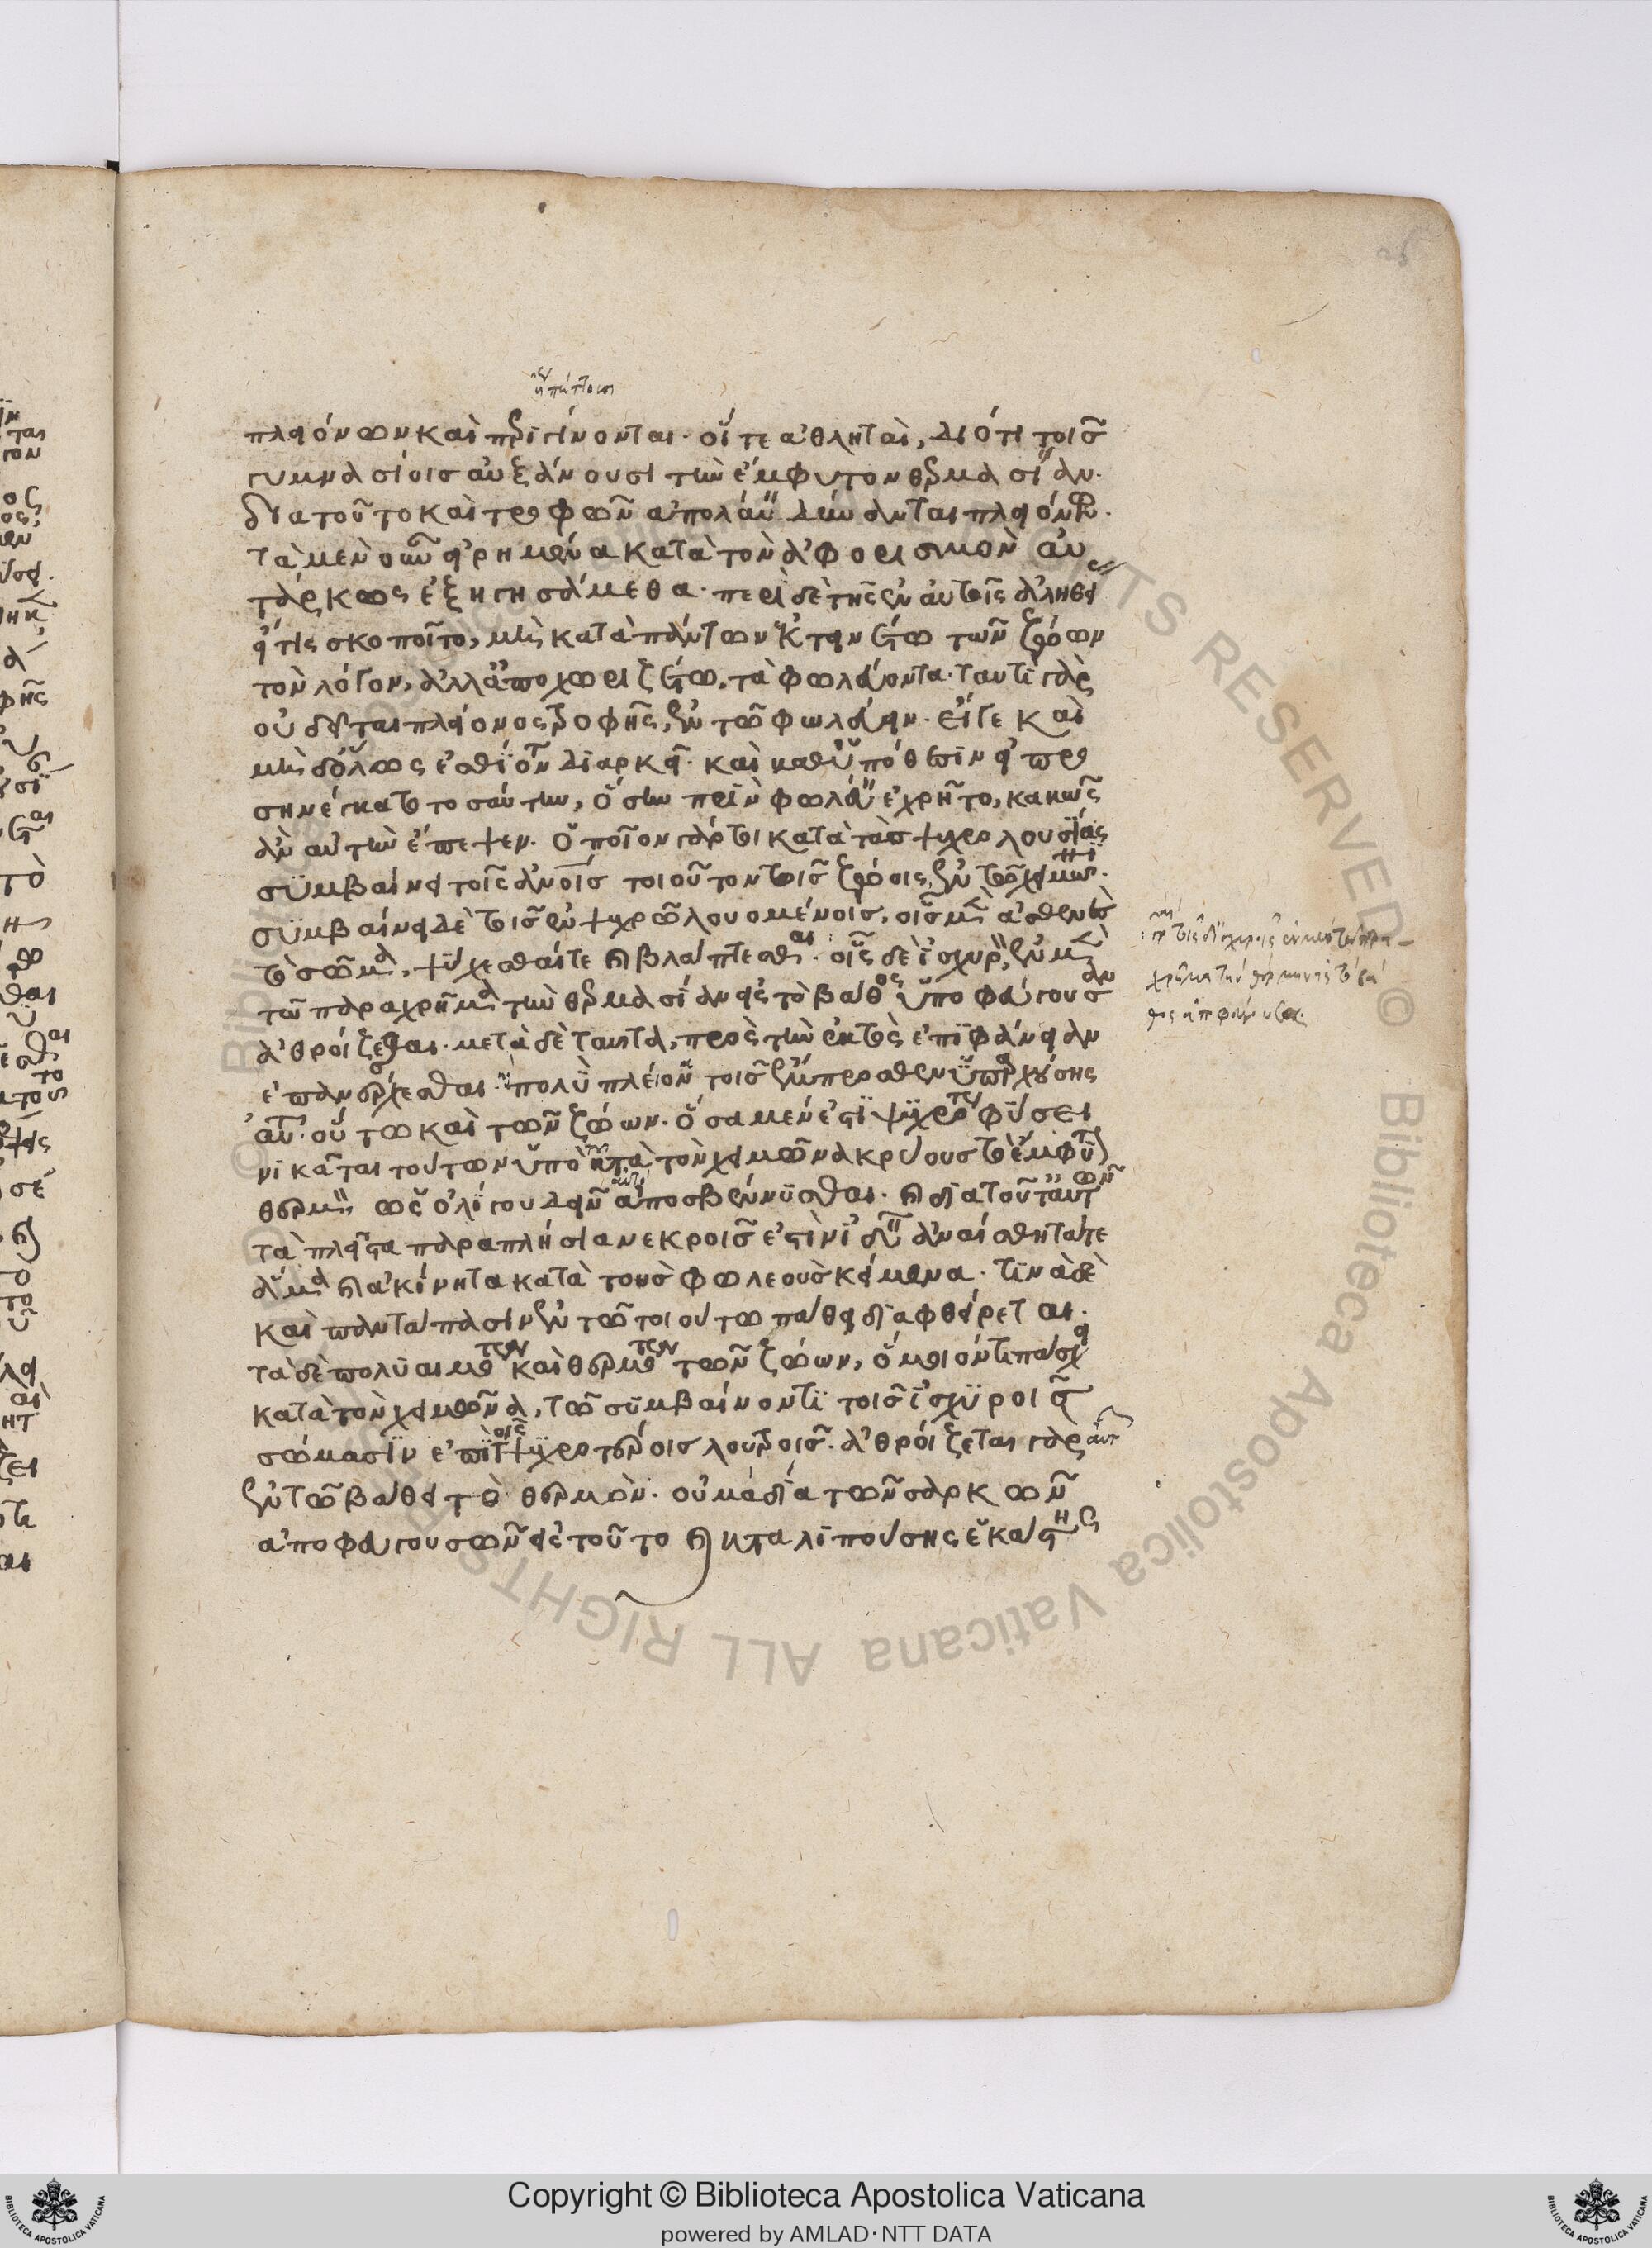 πλειόνων καὶ περιγίνονται. οἵ τε ἀθληταὶ, διότι τοῖς
γυμνασίοις αὐξάνουσι τὴν ἔμφυτον θερμασίαν.
διατοῦτο καὶ τροφῶν ἀπολαύειν δύνανται πλειόνων.
τὰ μὲν οὖν εἰρημένα κατὰ τὸν ἀφορισμὸν αὐ
τάρκως ἐξηγησάμεθα. περὶ δὲ τῆς ἐν αὐτοῖς ἀληθεί
εἴ τις σκοποῖτο, μὴ κατὰ πάντων ἐκτεινέτω τῶν ζώων
τὸν λόγον, ἀλλ' ἀποχωριζέτω, τὰ φωλεύοντα. ταυτὶ γὰρ
οὐ δεῖται πλείονος τροφῆς, ἐν τῷ φωλεύειν. εἴγε καὶ
μηδόλως ἐσθίοντα διαρκεῖ. καὶ καθ' ὑπόθεσιν εἰ προ
σηνέγκατο τοσαύτην, ὅσην πρὶν φωλεύειν ἐχρῆτο, κακῶς
ἂν αὐτὴν ἔπεψεν. ὁποῖον γάρ τι κατὰ τὰς ψυχρολουσίας
συμβαίνει τοῖς ἀνοις τοιοῦτον τοῖς ζώοις, ἐν τῷ χειμῶνι.
συμβαίνει δὲ τοῖς ἐν ψυχρῷ λουομένοις, οἷς μὲν ἀσθενὲς
τὸ σῶμα, ψύχεσθαί τε καὶ βλάπτεσθαι. οἷς δὲ ἰσχυρὸν, ἐν μὲν
τῷ παραχρῆμα τὴν θερμασίαν εἰς τὸ βάθος ὑποφεύγουσαν
ἀθροίζεσθαι. μετὰ δὲ ταῦτα, πρὸς τὴν ἐκτὸς ἐπιφάνειαν
ἐπανέρχεσθαι. πολὺ πλείονα τοῖς ἔμπροσθεν ὑπαρχούσης
αὐτ. οὕτω καὶ τῶν ζώων. ὅσα μέν ἐστι ψυχρότερα φύσει
νικᾶται τούτων ὑπὸ κατὰ τὸν χειμῶνα κρύους τὸ ἔμφυτον
θερμὸν ὡς ὀλίγου δεῖν ἀποσβέννυσθαι. καὶ διατοῦτ' αὐτῶν
τὰ πλεῖστα παραπλήσια νεκροῖς ἐστὶν ἰδεῖν ἀναίσθητά τε
ἅμα καὶ ἀκίνητα κατὰ τοὺς φωλεοὺς κείμενα. τινὰ δὲ
καὶ παντάπασιν ἐν τῷ τοιούτῳ πάθει διαφθείρεται.
τὰ δὲ πολυαιμότερα καὶ θερμότερα τῶν ζώων, ὅμοιόν τι πάσχει
κατὰ τὸν χειμῶνα, τῷ συμβαίνοντι τοῖς ἰσχυροῖς
σώμασιν ἐπὶ τοῖς ψυχροτέροις λουτροῖς. ἀθροίζεται γὰρ αὐτ
ἐν τῷ βάθει τὸ θερμὸν. οὐ μὰ δία τῶν σαρκῶν
ἀποφευγουσῶν εἰς τοῦτο καὶ καταλιπούσης ἑκάστης